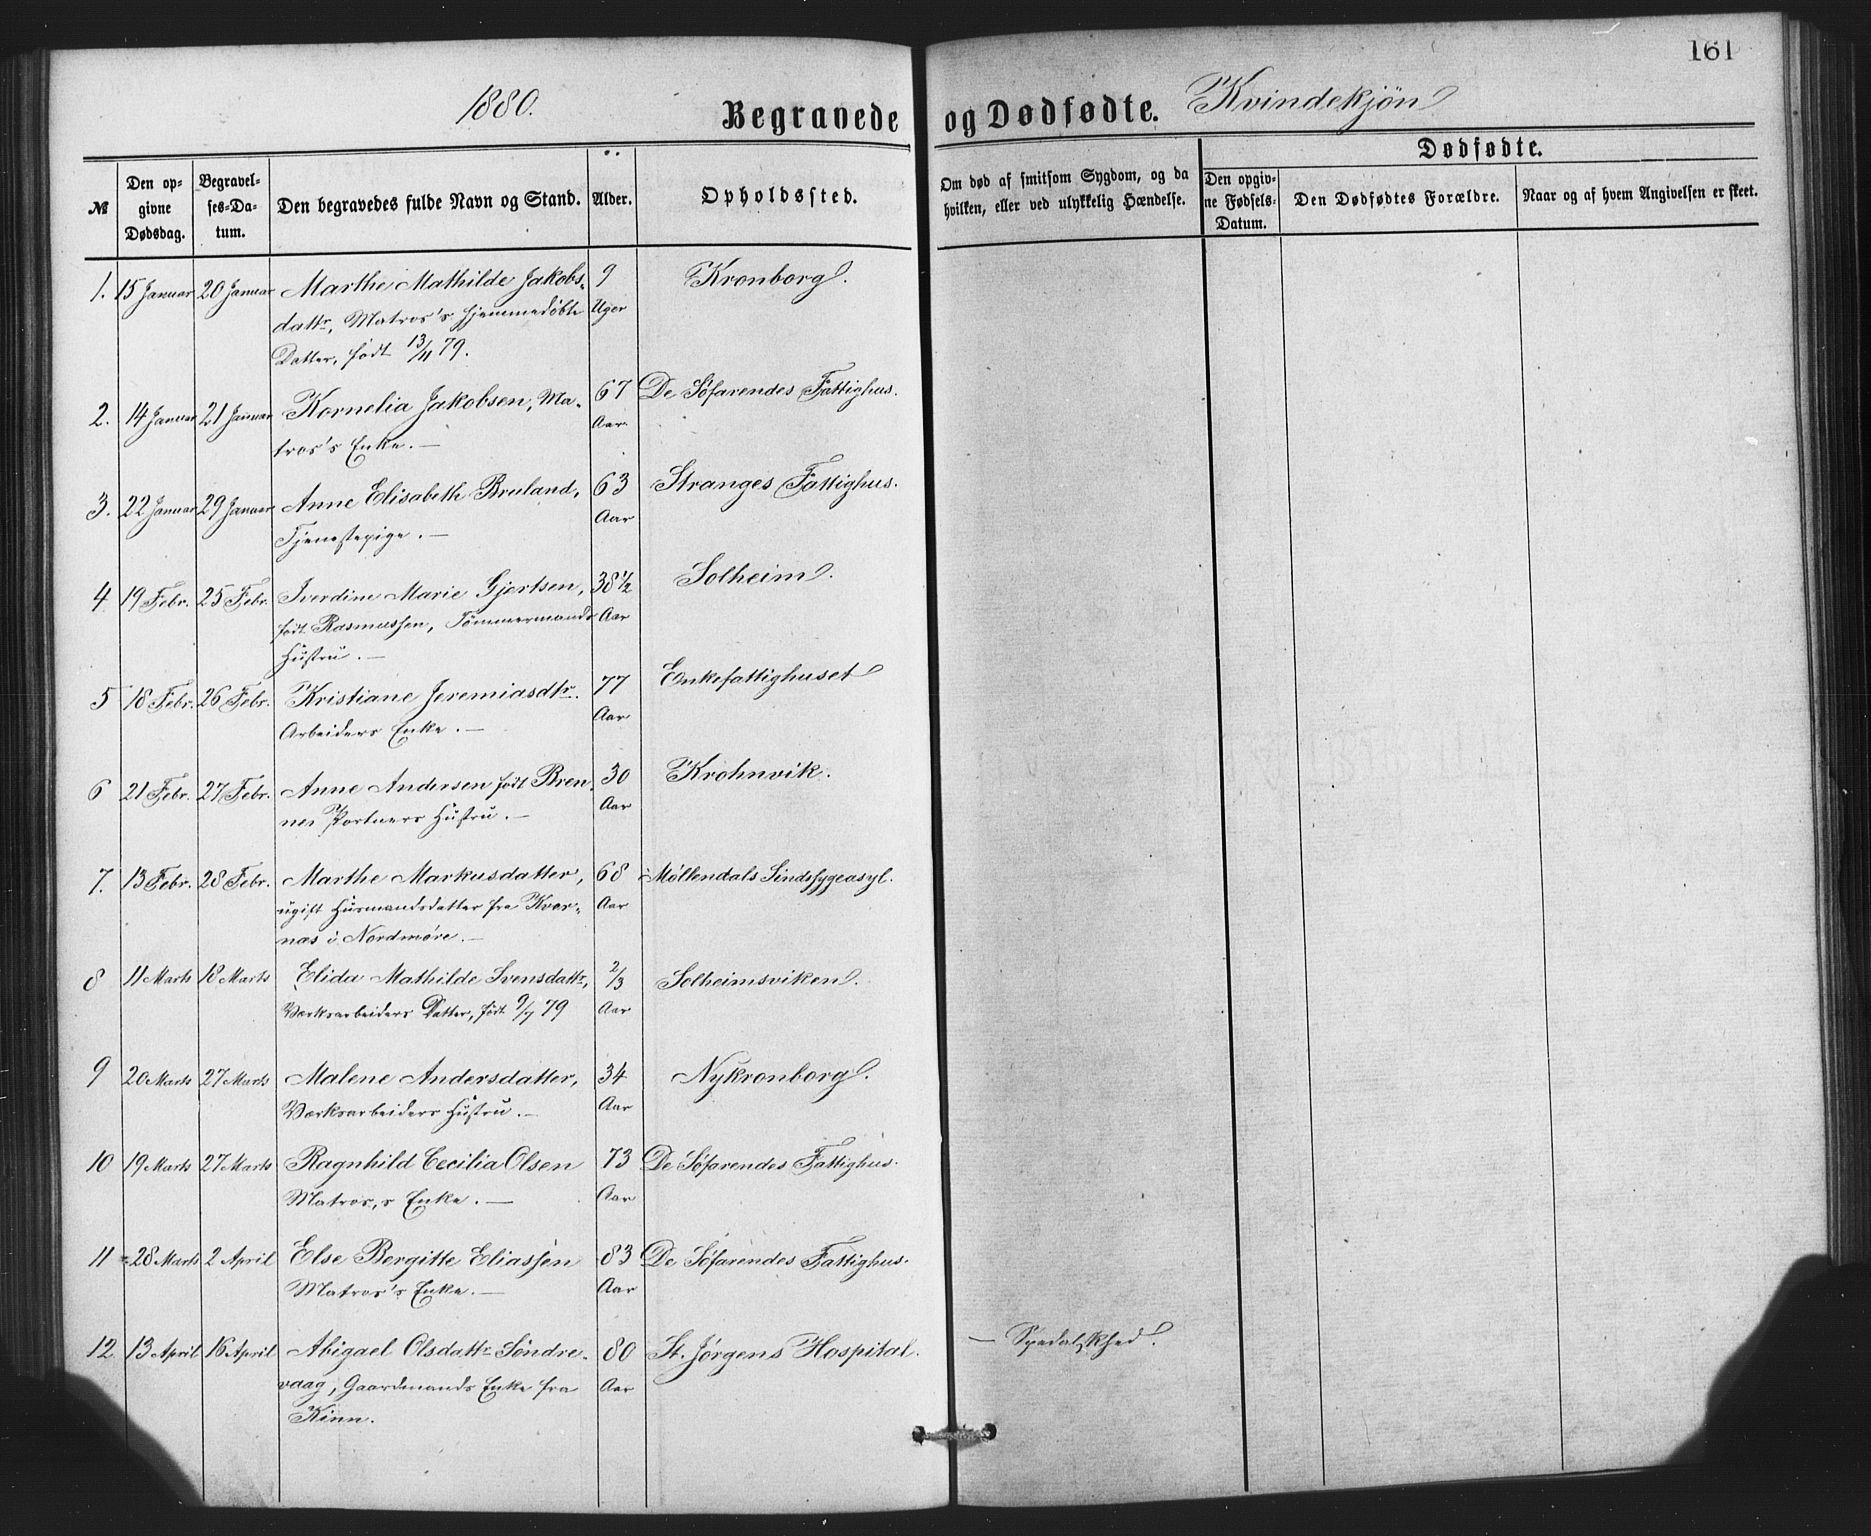 161
1880.
Begravede og Dødfødte. Kvindekjön
№
Den opgivne Dødsdag.
Begravelses-Datum.
Den begravedes fulde Navn og Stand.
Alder.
Opholdssted.
Om død af smitsom Sygdom, og da hvilken, eller ved ulykkelig Hændelse.
Dødfødte.
Den opgivne Fødsels-Datum.
Den Dødfødtes Forældre.
Naar og af hvem Angivelsen er skeet.
1. 15 Januar 20 Januar Marthe Mathilde Jakobs- 9 Kronborg.
dattr, Matros's hjemmedøbte Uger
Datter, født 13/11 79.
2. 14 Januar 21 Januar Kornelia Jakobsen, Ma- 67 De Söfarendes Fattighus.
tros's Enke.— Aar.
3. 22 Januar 29 Januar Anne Elisabeth Bruland, 63 Stranges Fattighus.
Tjenestepige.— Aar
4 19 Febr. 25 Febr. Iverdine Marie Gjertsen, 38½ Solheim.
født Rasmussen, Tömmermands Aar
Hustru.—
5 18 Febr. 26 Febr. Kristiane Jeremiasdtr. 77 Enkefattighuset
Arbeiders Enke.— Aar
6 21 Febr. 27 Febr. Anne Andersen født Bren- 30 Krohnvik.
nes Portners Hustru.— Aar
7. 13 Febr. 28 Febr. Marthe Markusdatter, 68 Møllendals Sindssygeasyl.
ugift Husmandsdatter fra Kvær- Aar
næs i Nordmøre.—
8 11 Marts 18 Marts Elida Mathilde Svensdattr, 2/3 Solheimsviken.
Værksarbeiders Datter, født 9/7 79 Aar
9 20 Marts 27 Marts Malene Andersdatter, 34 Nykronborg.
Værksarbeiders Hustru.— Aar
10 19 Marts 27 Marts Ragnhild Cecilia Olsen 73 De Söfarendes Fattighus.
Matros,s Enke.— Aar
11 28 Marts 2 April Else Bergitte Eliassen 83 De Söfarendes Fattighus.
Matros's Enke.— Aar
12 13 April 16 April Abigael Olsdattr Söndre- 80 St. Jörgens Hospital. — Spedalskhed.
vaag, Gaardmands Enke fra Aar
Kinn.